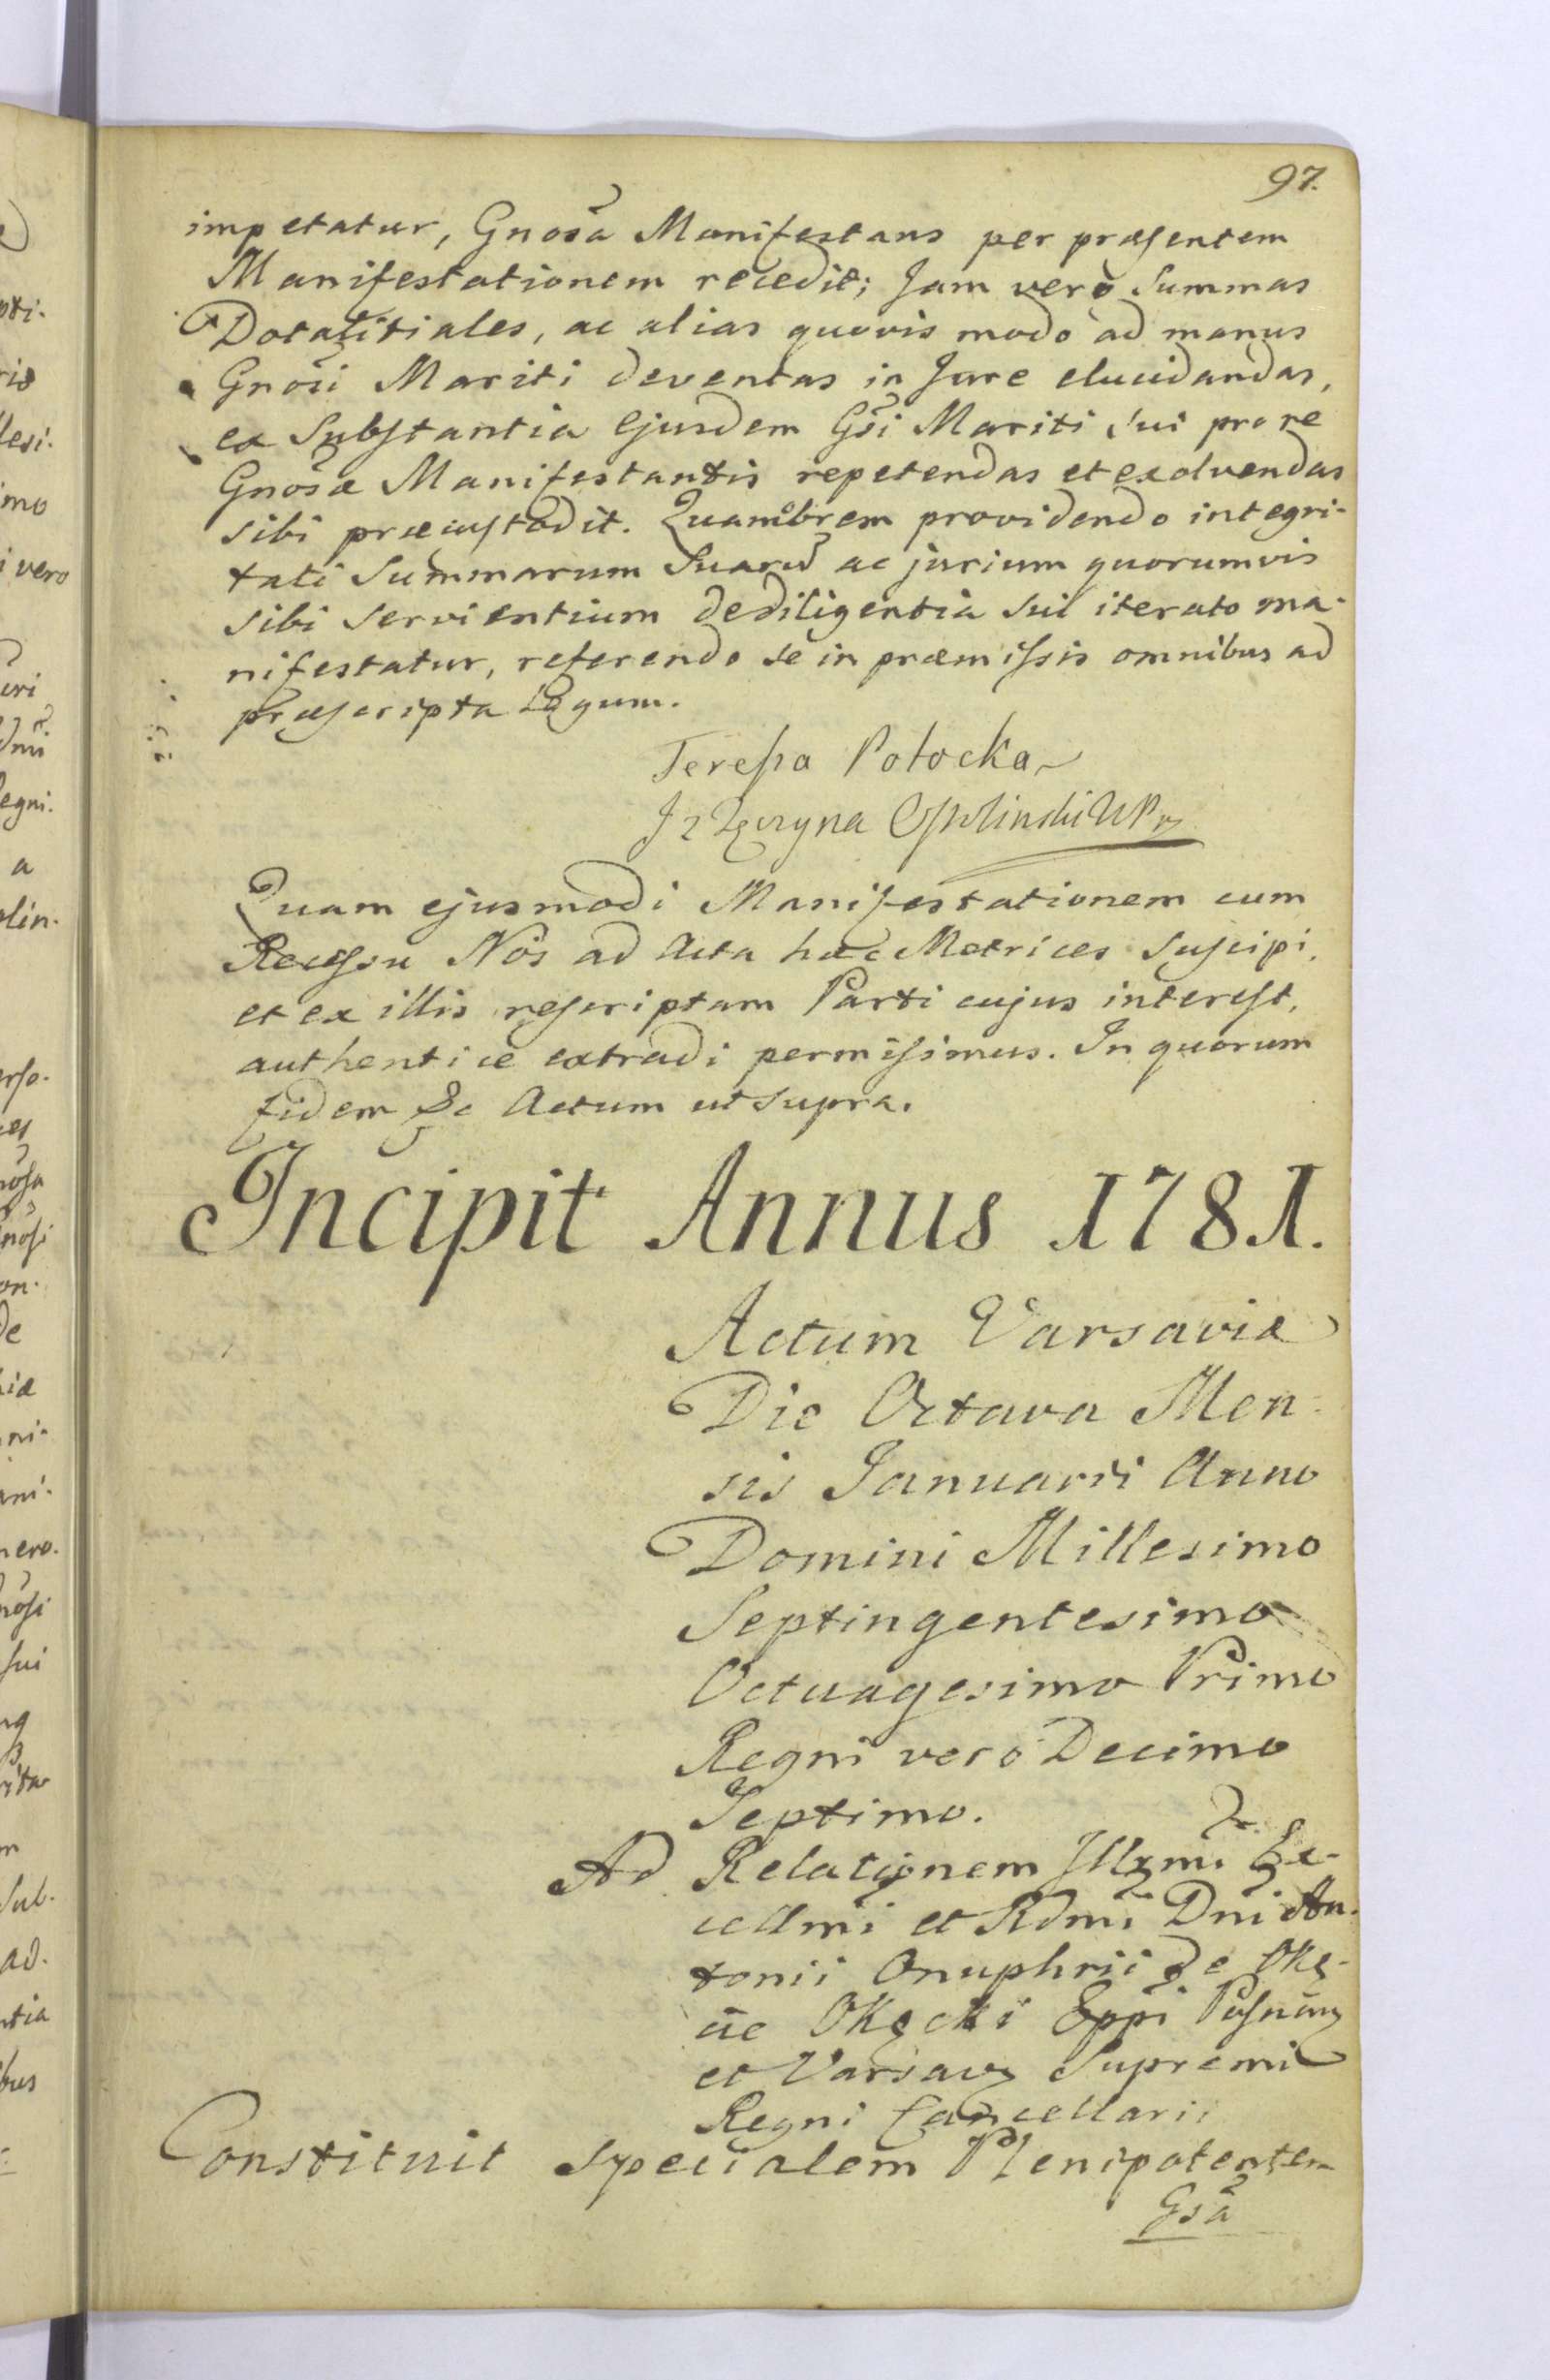 97.
impetatur, Gnosa Manifestans per præsentem
Manifestationem recedit; Jam verò Summas
Dotalitiales, ac alias quovis modo ad manus
Gnosi Mariti deventas in Jure elucidandas,
ex Substantia Ejusdem Gsi Mariti Sui pro re
Gnosæ Manifestantis repetendas et exolvendas
sibi præcustodit. Quamobrem providendo integri-
tati Summarum Suarũ ac jurium quorumvis
sibi servientium de diligentia sui iterato ma-
nifestatur, referendo se in præmissis omnibus ad
præscripta Legum.
Teressa Potocka
J z Tęczyna Ossolinski WP
Quam ejusmodi Manifestationem cum
Recessu Nos ad Acta hæc Metrices Suscipi,
et ex illis rescriptam Parti cujus interest,
authentice extradi permisimus. In quorum
fidem &c Actum ut supra.
Incipit Annus 1781.
Actum Varsaviæ
Die Octava Men-
sis Januarii Anno
Domini Millesimo
Septingentesimo
Octuagesimo Primo
Regni verò Decimo
Septimo.
Ad Relationem Illmi Ex-
cellmi et Rdmi Dni An-
tonii Onuphrii de Okę-
cie Okęcki Eppi Posnan
et Varsav Supremi
Regni Cancellarii
Constituit Specialem Plenipotentem
Gsa